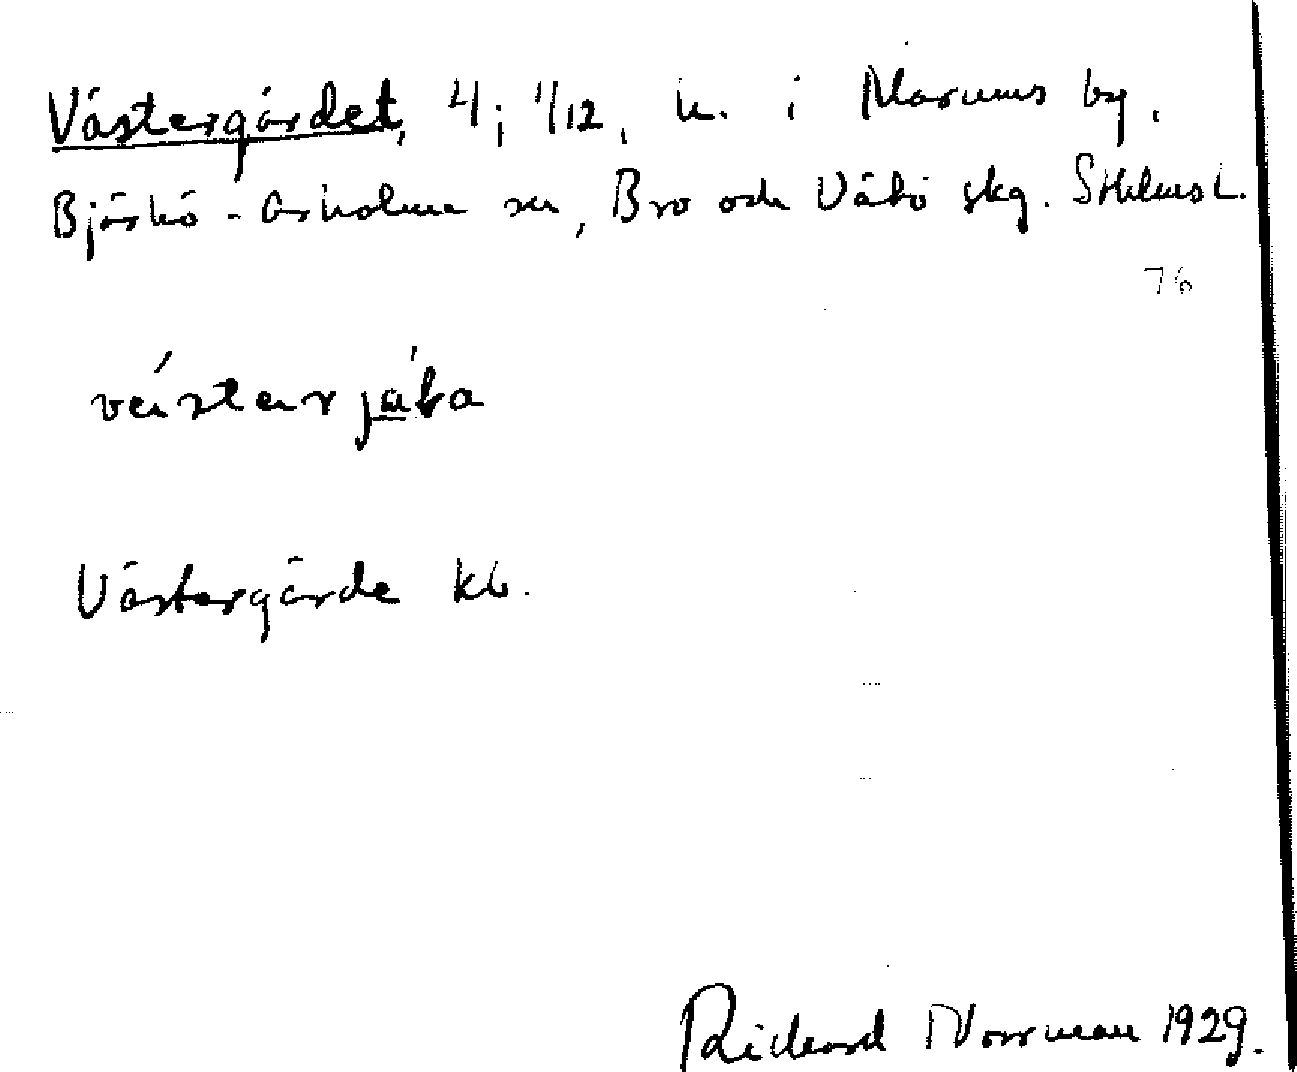 Västergärdet, 4; 1/12, h. i Marums by.
Björkö-Arholma sn, Bro och Vätö skg. Sthlms L.
76
Västergärde kb.
Richard Norrman 1929.